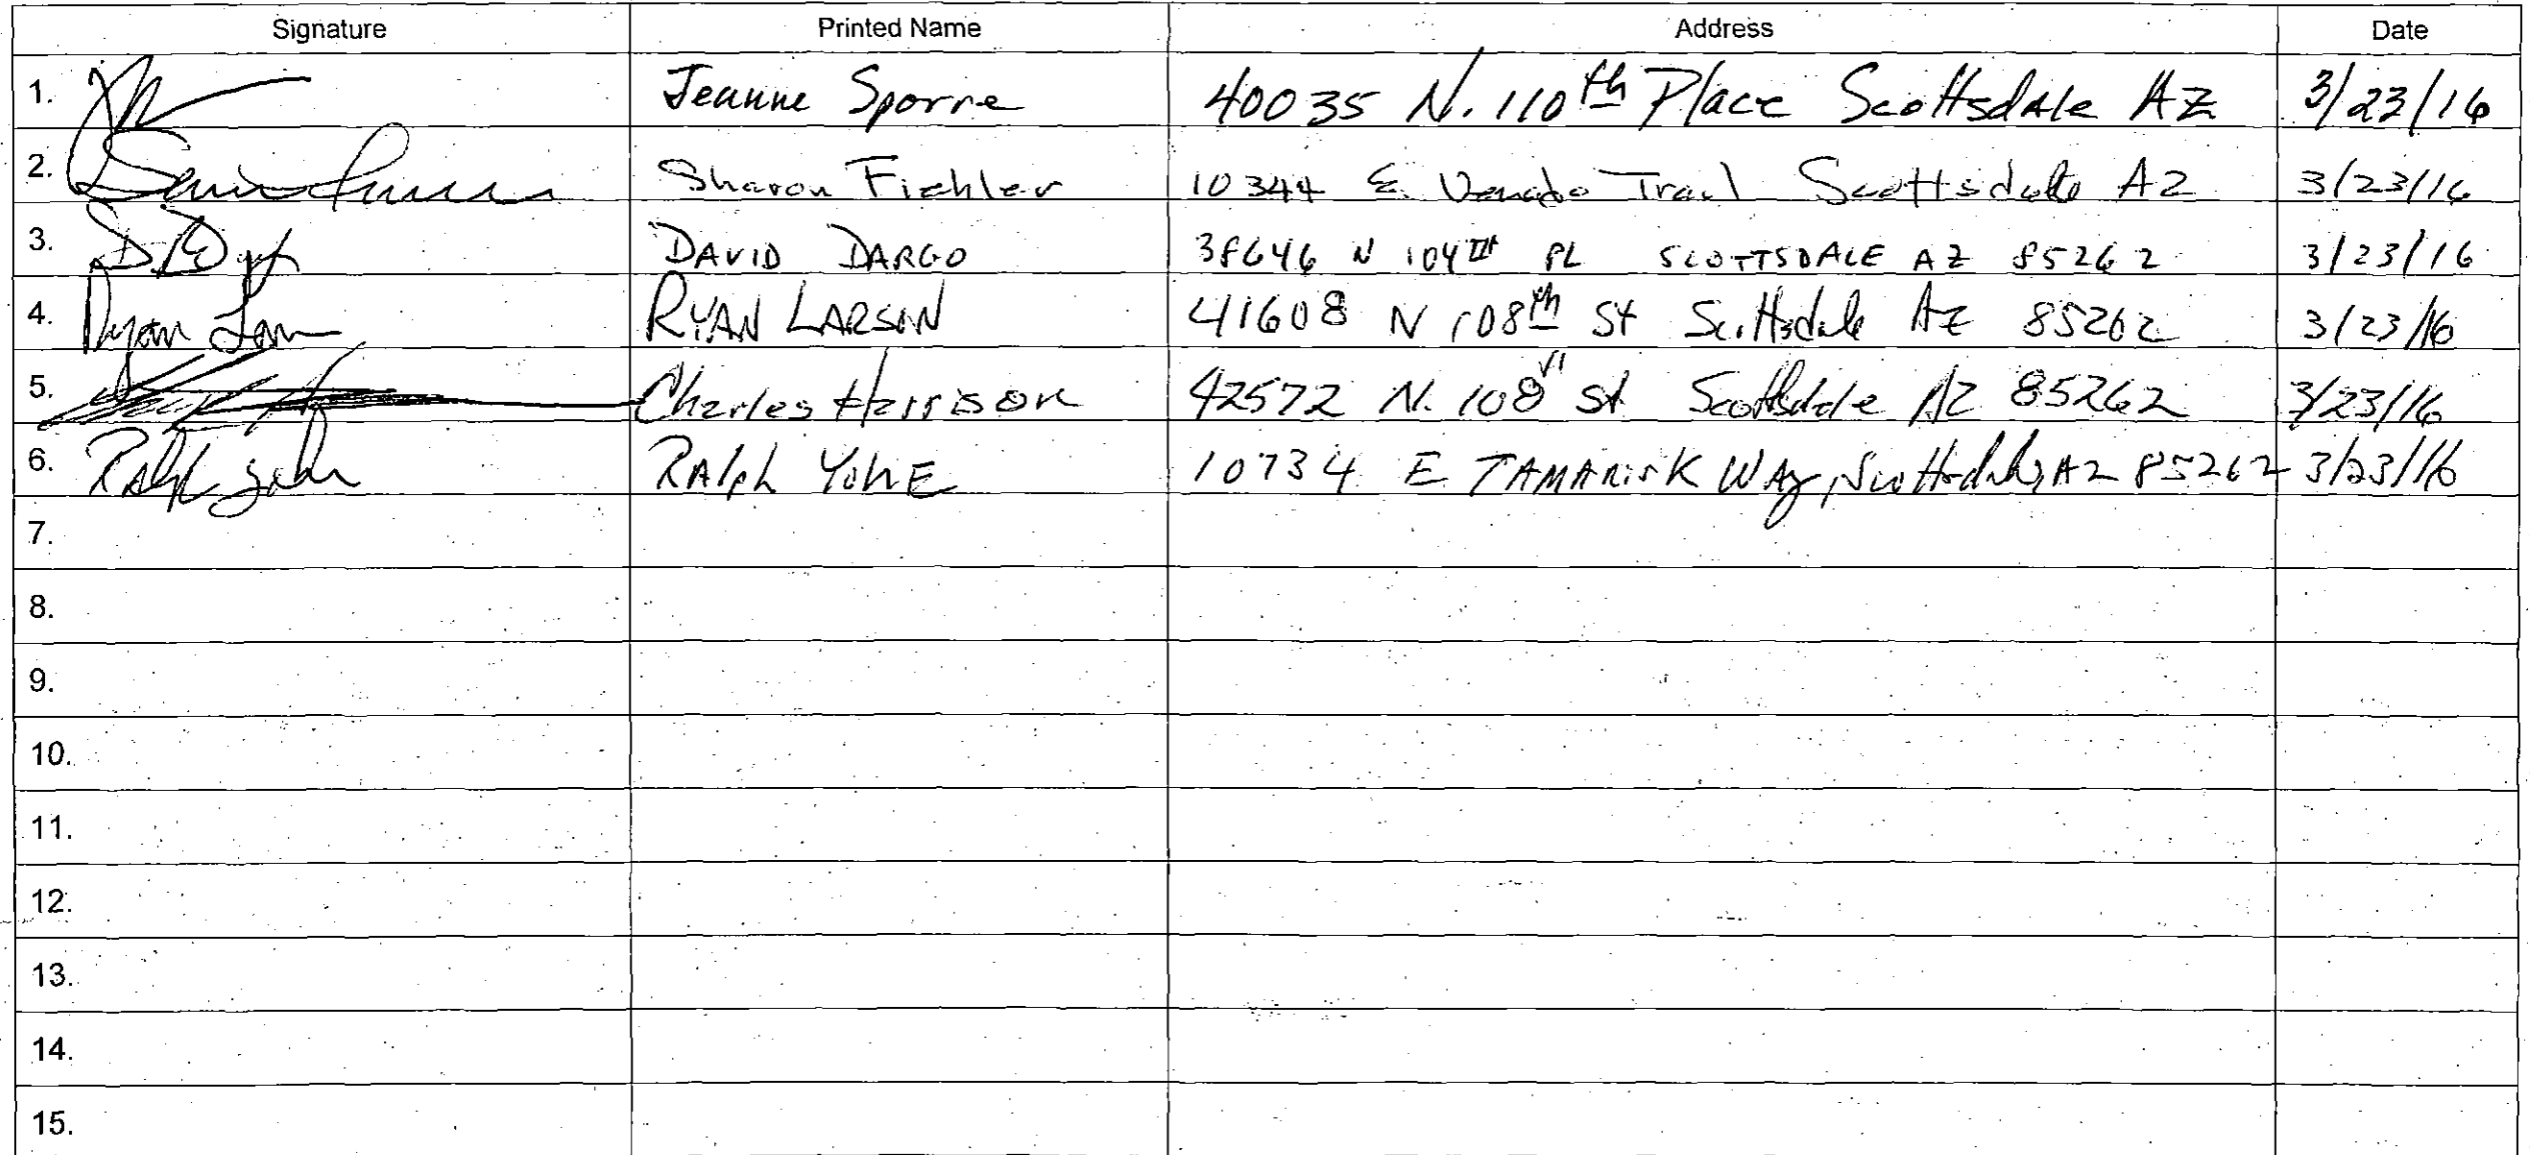 Signature Printed Name Address Date
1. Jeanne Sporre 40035 N. 110th Place Scottsdale AZ 3/23/16
2. Sharon Fichler 10344 E. Venado Trail Scottsdale AZ 3/23/16
3. DAVID DARGO 38646 N 104TH PL SCOTTSDALE AZ 85262 3/23/16
4. Ryan RYAN LARSON 41608 N 108th St Scottsdale Az 85262 3/23/16
5. Charles Harrison 42572 N. 108 St Scottsdale AZ 85262 3/23/16
6. Ralph RALph YOHE 10734 E TAMARISK WAy, Scottsdale, AZ 85262 3/23/16
7.
8.
9.
10.
11.
12.
13.
14.
15.